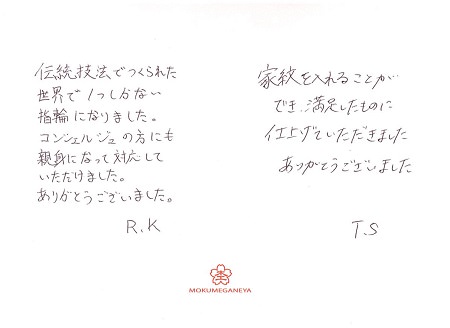 伝統技法でつくられた
世界で1つしかない
指輪になりました。
コンシェルジュの方にも
親身になって対応して
いただけました。
ありがとうございました。
R.K
家紋を入れることが
でき、満足したものに
仕上げていただきました
ありがとうございました
T.S
MOKUMEGANEYA